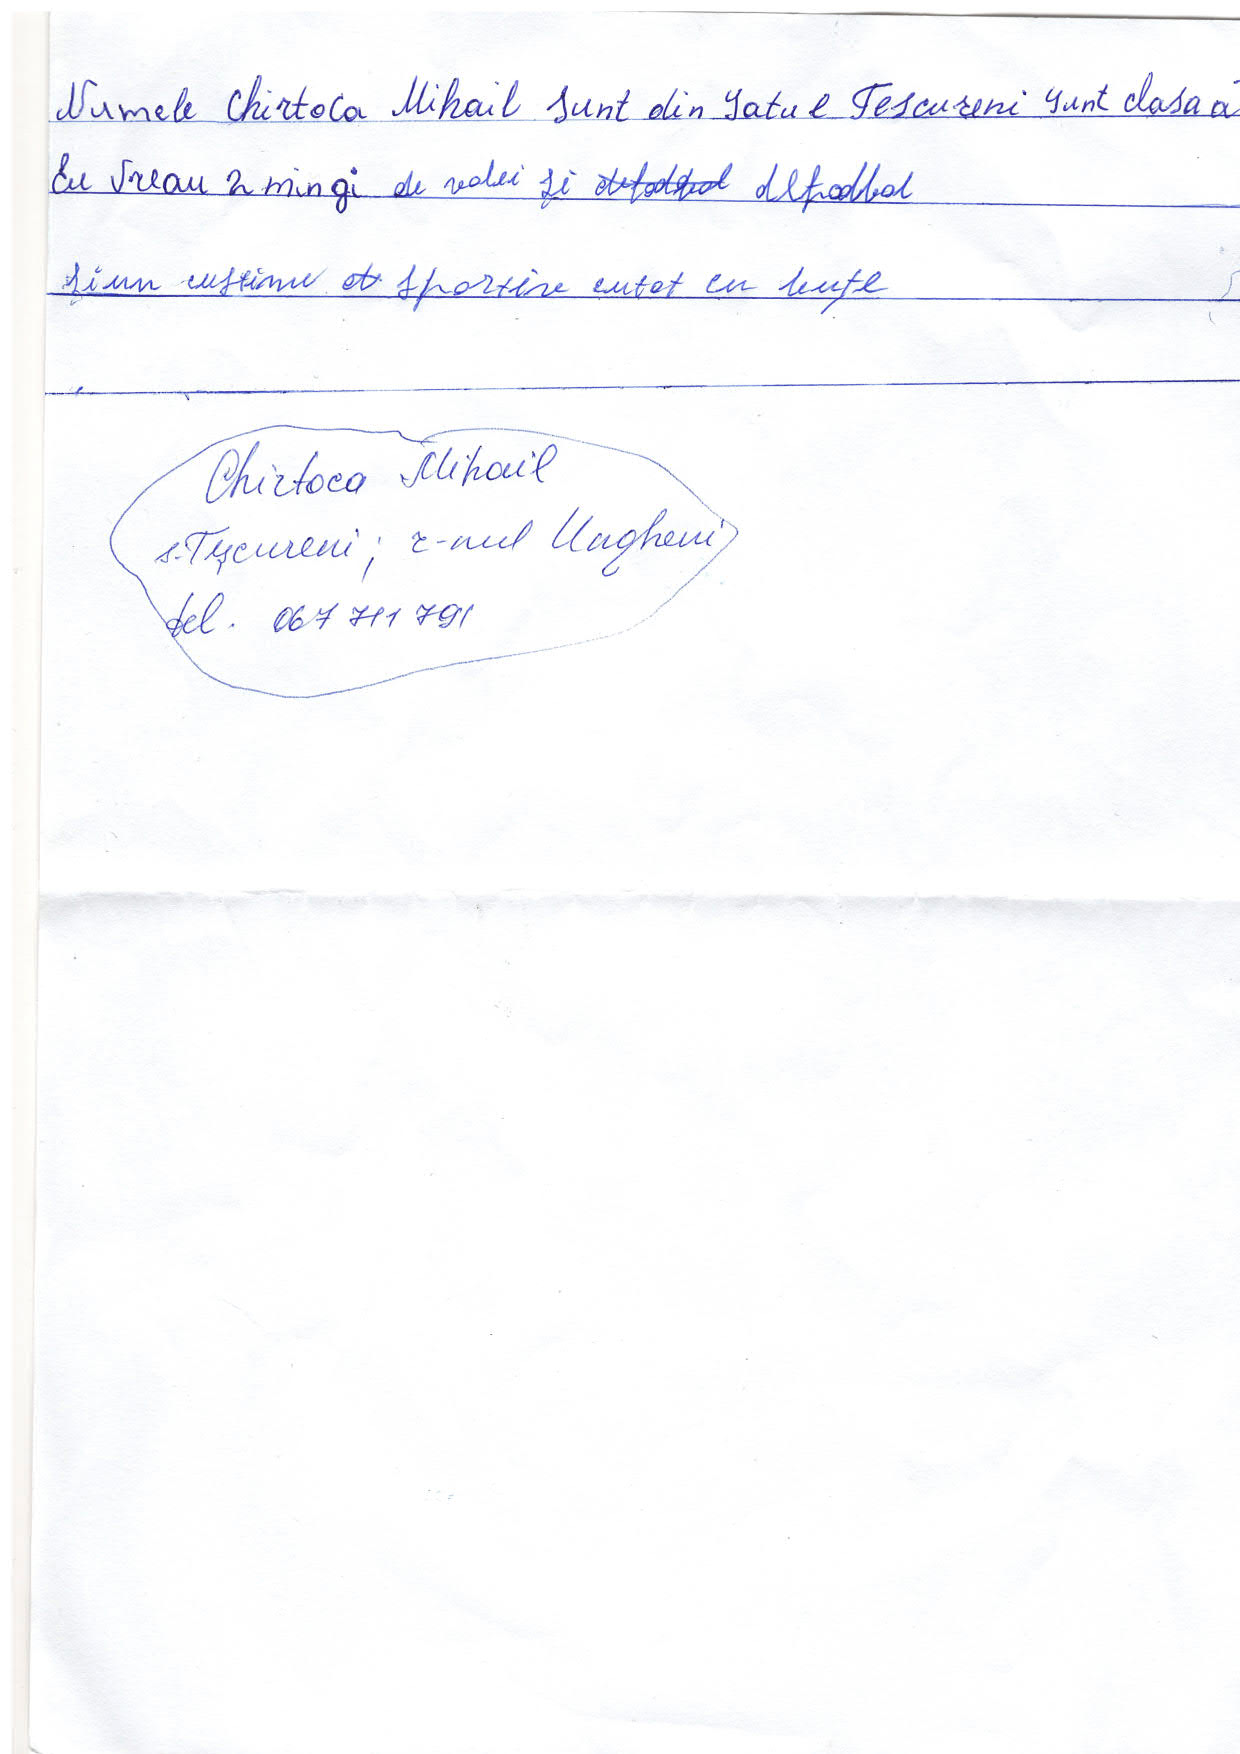 Numele Chirtoca Mihail sunt din satul Tescureni sunt clasa a
Eu vreau 2 mingi de volei și defodbol defodbol
și un custime sportive cutot cu buțe
Chirtoca Mihail
s. Tșcureni; r-nul Ungheni
tel. 067 711 791